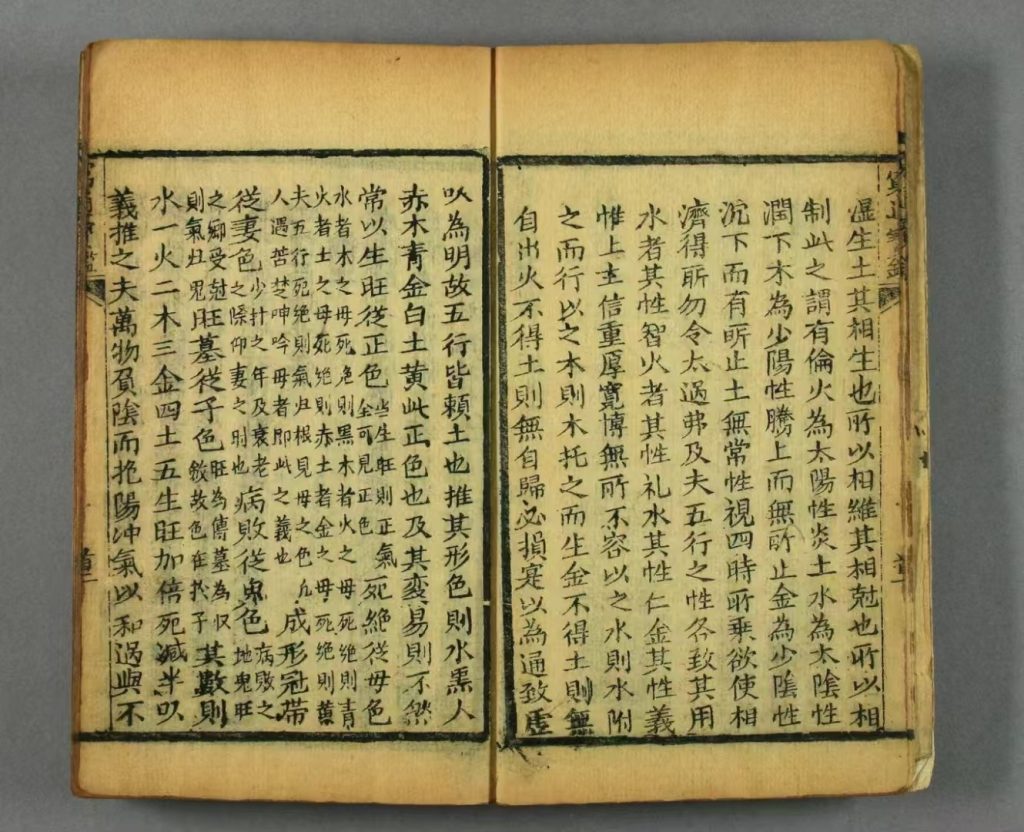 湿生土其相生也所以相維其相尅也所以相
制此之謂有倫火為太陽性炎土水為太陰性
潤下木為少陽性騰上而無所止金為少陰性
沉下而有所止土無常性視四時所乘欲使相
濟得所勿令太過弗及夫五行之性各致其用
水者其性智火者其性礼木其性仁金其性義
惟上主信重厚寛博無所不容以之水則水附
之而行以之木則木托之而生金不得土則無
自出火不得土則無自歸必損寔以為通致虚
以為明故五行皆頼土也推其形色則水黒人
赤木青金白土黄此正色也及其変易則不然
常以生旺従正色
當生旺則正氣
全可見正色
死絶従母色
水者木之母死絶則黒木者火之母死絶則青
火者土之母死絶則赤土者金之母死絶則黄
夫五行死絶則氣歸根見母之色
人遇苦楚呻吟母者即此之義也
成形冠帯
従妻色
少壮之年及衰老
之際仰妻之時也
病敗従鬼色
病敗之
地鬼旺
之郷受尅
則氣
旺墓従子色
旺為傳墓為収
故色在于子
其數則
水一火二木三金四土五生旺加倍死減半以
義推之夫萬物負陰而抱陽冲氣以和過與不